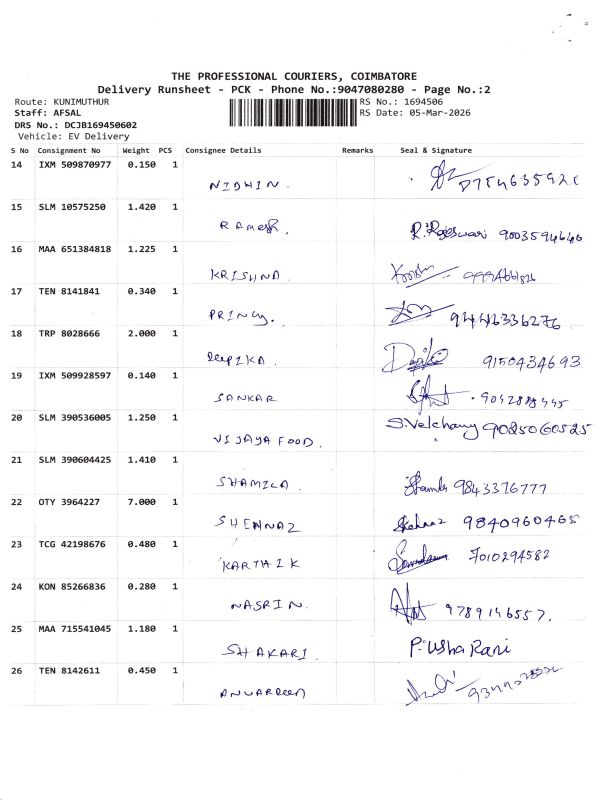 THE PROFESSIONAL COURIERS, COIMBATORE
Delivery Runsheet - PCK - Phone No.:9047080280 - Page No.:2
Route: KUNIMUTHUR RS No.: 1694506
Staff: AFSAL RS Date: 05-Mar-2026
DRS No.: DCJB169450602
Vehicle: EV Delivery
S No Consignment No Weight PCS Consignee Details Remarks Seal & Signature
14 IXM 509870977 0.150 1
NIDHIN.
15 SLM 10575250 1.420 1
RAMESH. R. Rajeswari 9003594646
16 MAA 651384818 1.225 1
KRISHNA
17 TEN 8141841 0.340 1
PRINCY. 9446336276
18 TRP 8028666 2.000 1
DEEPIKA. 9150434693
19 IXM 509928597 0.140 1
SANKAR
20 SLM 390536005 1.250 1
VIJAYA FOOD. 9025060525
21 SLM 390604425 1.410 1
SHAMILA. 9843376777
22 OTY 3964227 7.000 1
SHEHNAZ Shehnaz 9840960465
23 TCG 42198676 0.480 1
KARTHIK 7010294582
24 KON 85266836 0.280 1
NASRIN. 9789146557.
25 MAA 715541045 1.180 1
SHAKARI. P. Usha Rani
26 TEN 8142611 0.450 1
ANWARDEEN